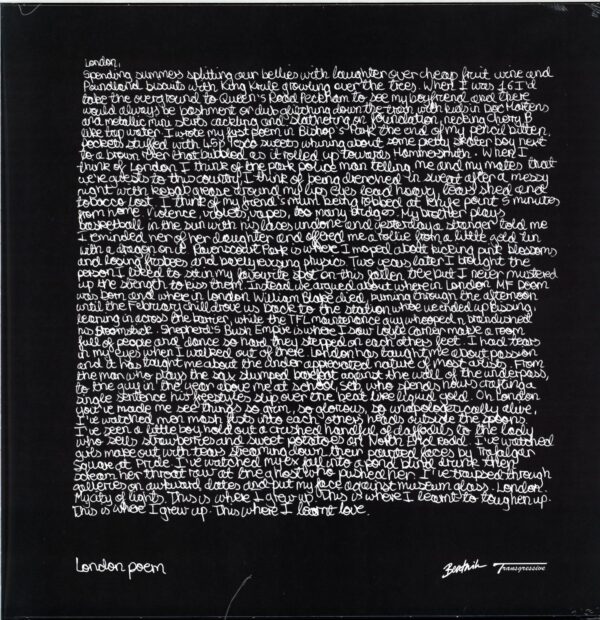 London,
Spending summers splitting our bellies with laughter over cheap fruit wine and
Poundland biscuits with King Krule growling over the trees. When I was 16 I'd
take the overground to Queen's Road Peckham to see my boyfriend and there
would always be bashment or dub glitching down the train with kids in Doc Martens
and metallic mini skirts cackling and slathering on foundation, necking Cherry B
like tap water. I wrote my first poem in Bishop's Park the end of my pencil bitten,
pockets stuffed with 45p Tesco sweets whining about some petty skater boy next
to a brown river that bubbled as it rolled up towards Hammersmith. When I
think of London I think of the park police man telling me and my mates that
we're guests to this country. I think of being drenched in sweat after a messy
night with kebab grease around my lips, eyes lead heavy, keys lost and
tobacco lost. I think of my friend's mum being robbed at knife point 5 minutes
from home. Violence, violets, vapes, too many bridges. My brother plays
basketball in the sun with his laces undone and yesterday a stranger told me
I reminded her of her daughter and offered me a rollie from a little gold tin
with a dragon on it. Ravenscourt Park is where I moped about kicking past blossoms
and losing frisbees and barely evening physics. Two years later I brought the
person I liked to sit in my favourite spot on this fallen tree but I never mustered
up the strength to kiss them. Instead we argued about where in London MF Doom
was born and where in London William Blake died, burning through the afternoon
until the February chill drove us back to the station where we ended up kissing,
leaning in across the barrier, while the TFL maintenance guy whooped n brandished
his broomstick. Shepherd's Bush Empire is where I saw Loyle Carner make a room
full of people and dance so hard they stepped on each others feet. I had tears
in my eyes when I walked out of there. London has taught me about passion
and it has taught me about the under appreciated nature of most artists. From
the man who plays the sax slumped back against the wall of the underpass,
to the guy in the year above me at school, Seb, who spends hours crafting a
single sentence his freestyles slip over the beat like liquid gold. Oh London
you've made me see things so grim, so glorious, so unapologetically alive,
I've watched men mash fists into each others heads outside the spoons.
I've seen a little kid hold out a crushed handful of daffodils to the lady
who sells strawberries and sweet potatoes on North End Road. I've watched
girls make out with tears streaming down their painted faces by Trafalgar
Square at Pride. I've watched my ex fall into a pond blind drunk then
scream her throat raw at the ghost who pushed her. I've traipsed through
galleries on awkward dates and put my face against museum glass. London.
My city of lights. This is where I grew up. This is where I learnt to toughen up.
This is where I grew up. This where I learnt love.
London poem
Beatnik Transgressive